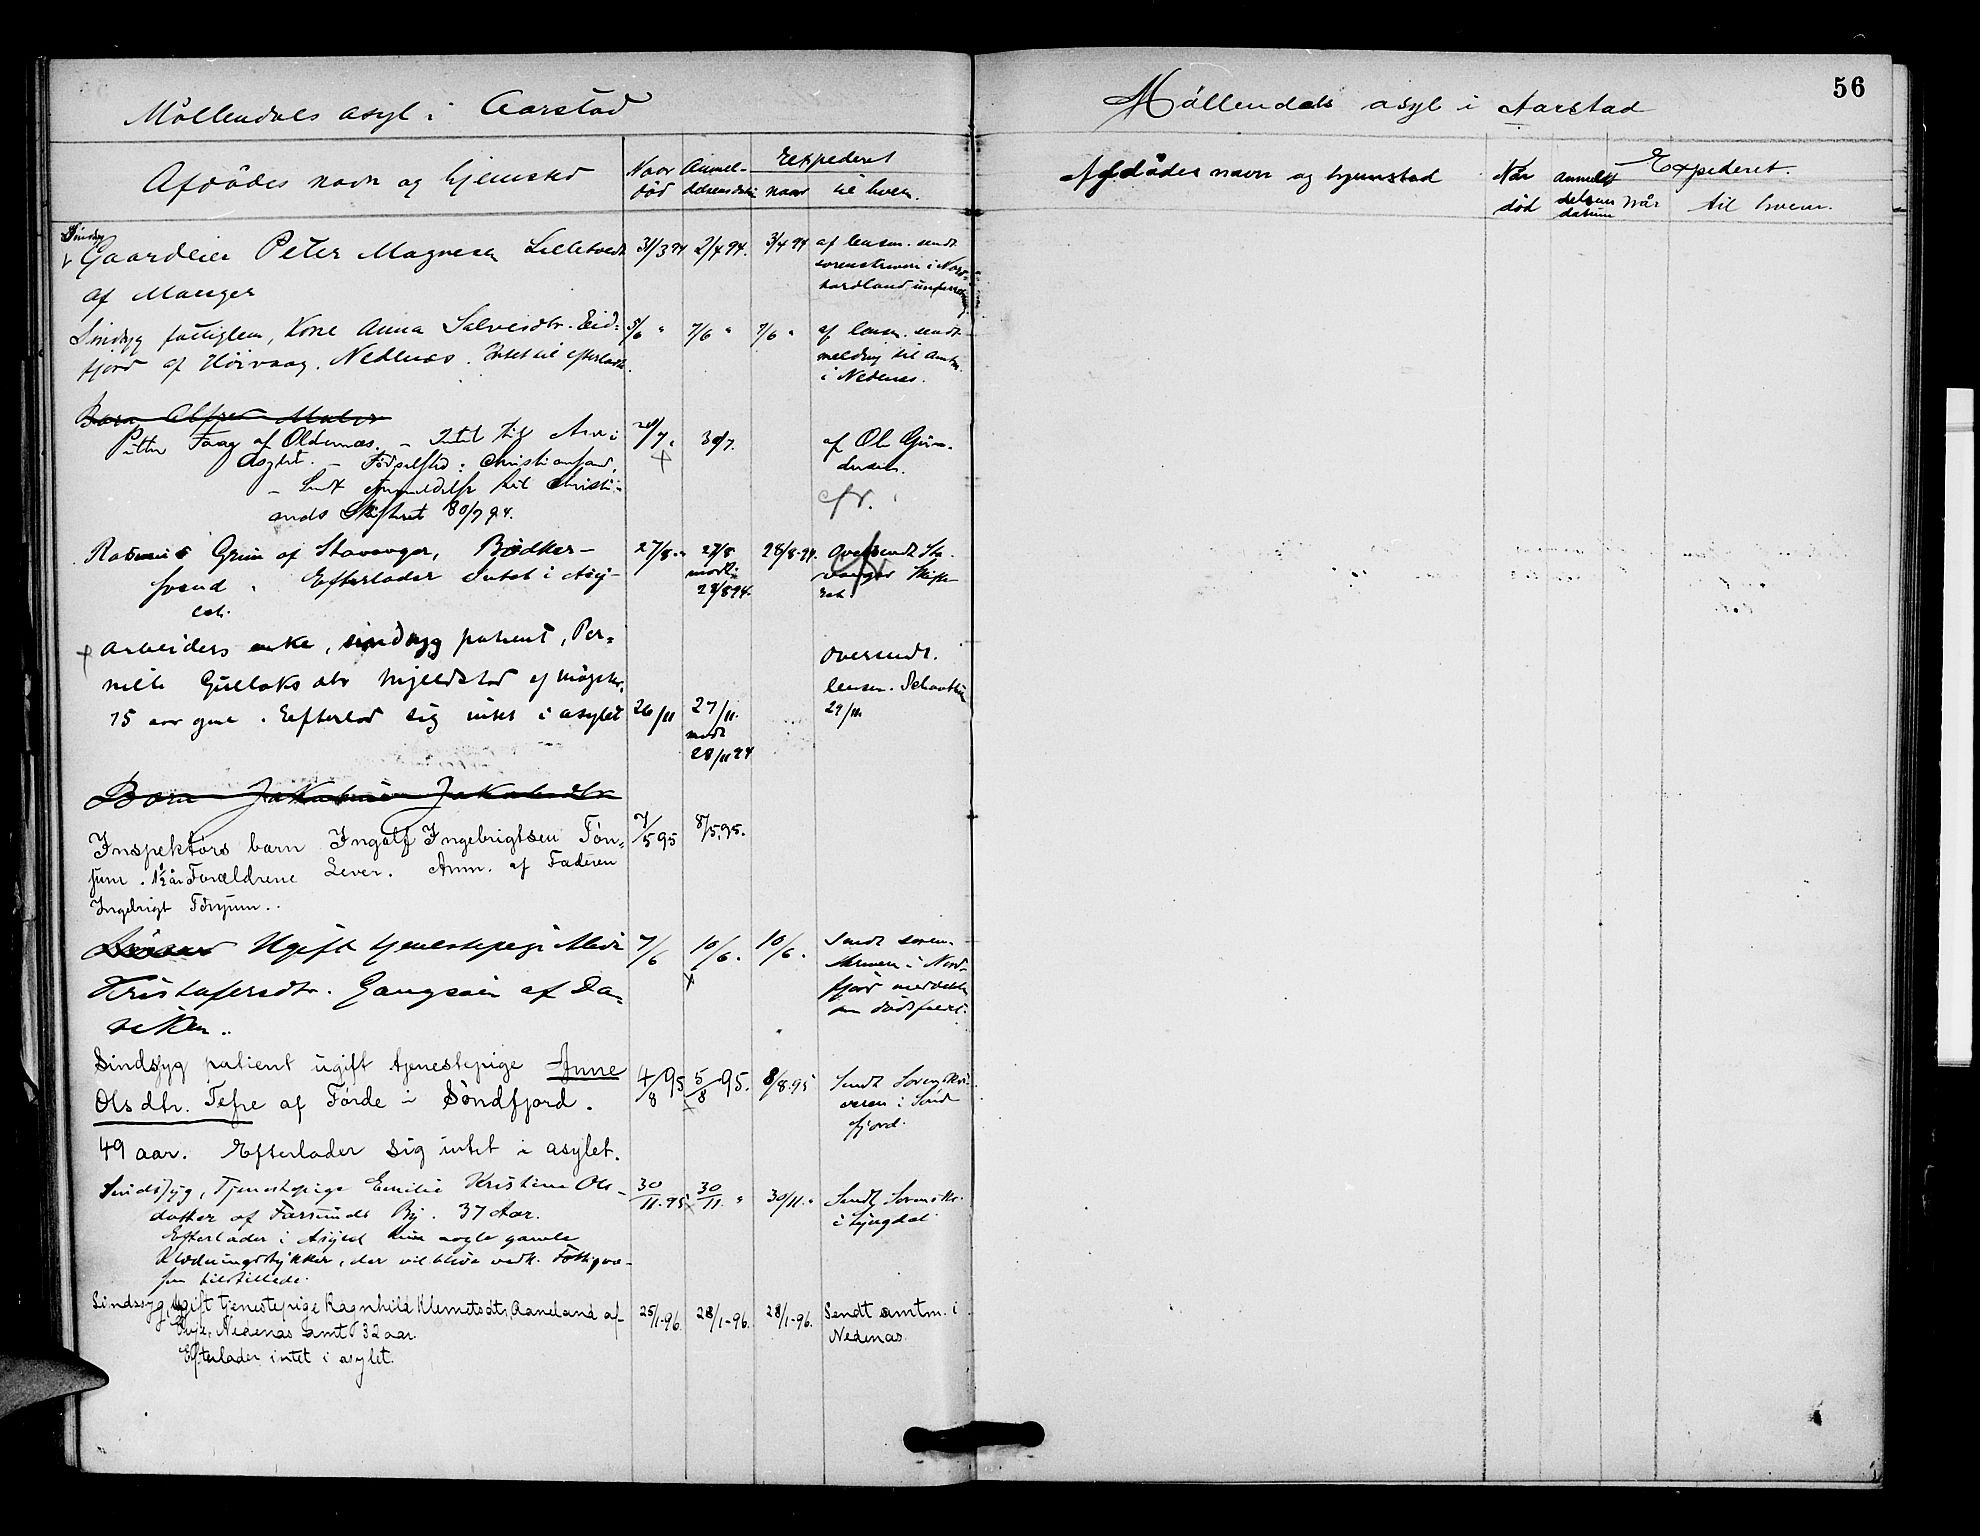 Möllendals asyl i Aarstad
Afdödes navn og hjemsted
Naar död
Anmeldelsesdatum
Expederet
naar
til hvem.
Sindssyg
Gaardeier Peter Magnesen Lilletvedt
af Manger
31/3 94
2/4 94.
3/4 94
af lensm. sendt
sorenskriveren i Nord-
hordland
Sindsyg fattiglem, Kone Anna Salvesdtr. Eid-
fjord af Höivaag, Nedenæs. Intet til efterladt.
5/6 "
7/6 "
7/6 "
af lensm. sendt
melding til Amtm.
i Nedenes.
Barn Alfred
Petter Faag af Oldernæs. – Intet til Arv i
Asylet. – Födselsted: Christiansand.
– Sendt Anmeldelse til Christi-
ands Skifteret 30/7 94.
30/7.
af Ol.
cfr.
Rasmus Grim af Stavanger, Bødker-
svend. Efterlader Intet i Asy-
let.
27/8. "
27/8
modt.
28/8 94.
28/8 94.
Oversendt Sta-
vanger Skifte-
ret.
Arbeiders enke, sindsyg patient, Per-
nille Gullaksdtr Mjeldstad af
75 aar gml. Efterlod sig intet i asylet
26/11
27/11.
modt
28/11 94
oversendt.
lensm.
29/11.
Barn Jakobine Jakobsdtr
Inspektörs barn Ingolf Ingebrigtsen Tön-
jum. 1½ år Forældrene Lever. Anm. af Faderen
Ingebrigt Tönjum..
7/5 95
8/5 95.
Ugift tjenestepige
Kristofersdtr. Gangsøen af Da-
viken..
7/6
10/6.
10/6.
Sendt soren-
skriveren i Nord-
fjord meddelelse
om dödsfaldet.
Sindssyg patient ugift tjenestepige Anne
Olsdtr. Tefre af Förde i Söndfjord.
49 aar. Efterlader sig intet i asylet.
4/8 95
5/8 95.
8/8.95
Sendt Sorenskri-
veren i Sönd-
fjord.
Sindssyg, Tjenestepige Emilie Kristine Ols-
datter af Farsunds By. 37 Aar.
Efterlader i Asylet kun nogle gamle
Klædningsstykker, der vil blive vedk. Fattigvæ-
sen tilstillede.
30/11.95
30/11. "
30/11. "
Sendt Sorenskr.
i Lyngdal.
Sindssyg, ugift tjenestepige Ragnhild Klemetsdtr, Aaneland af
Evje, Nedenæs amt 32 aar.
Efterlader intet i asylet.
25/1-96.
28/1-96.
28/1-96.
Sendt amtm. i
Nedenæs.
56
Möllendals asyl i Aarstad
Afdödes navn og hjemsted
Når död
Anmeldelsens datum
Expederet.
Når
til hvem.